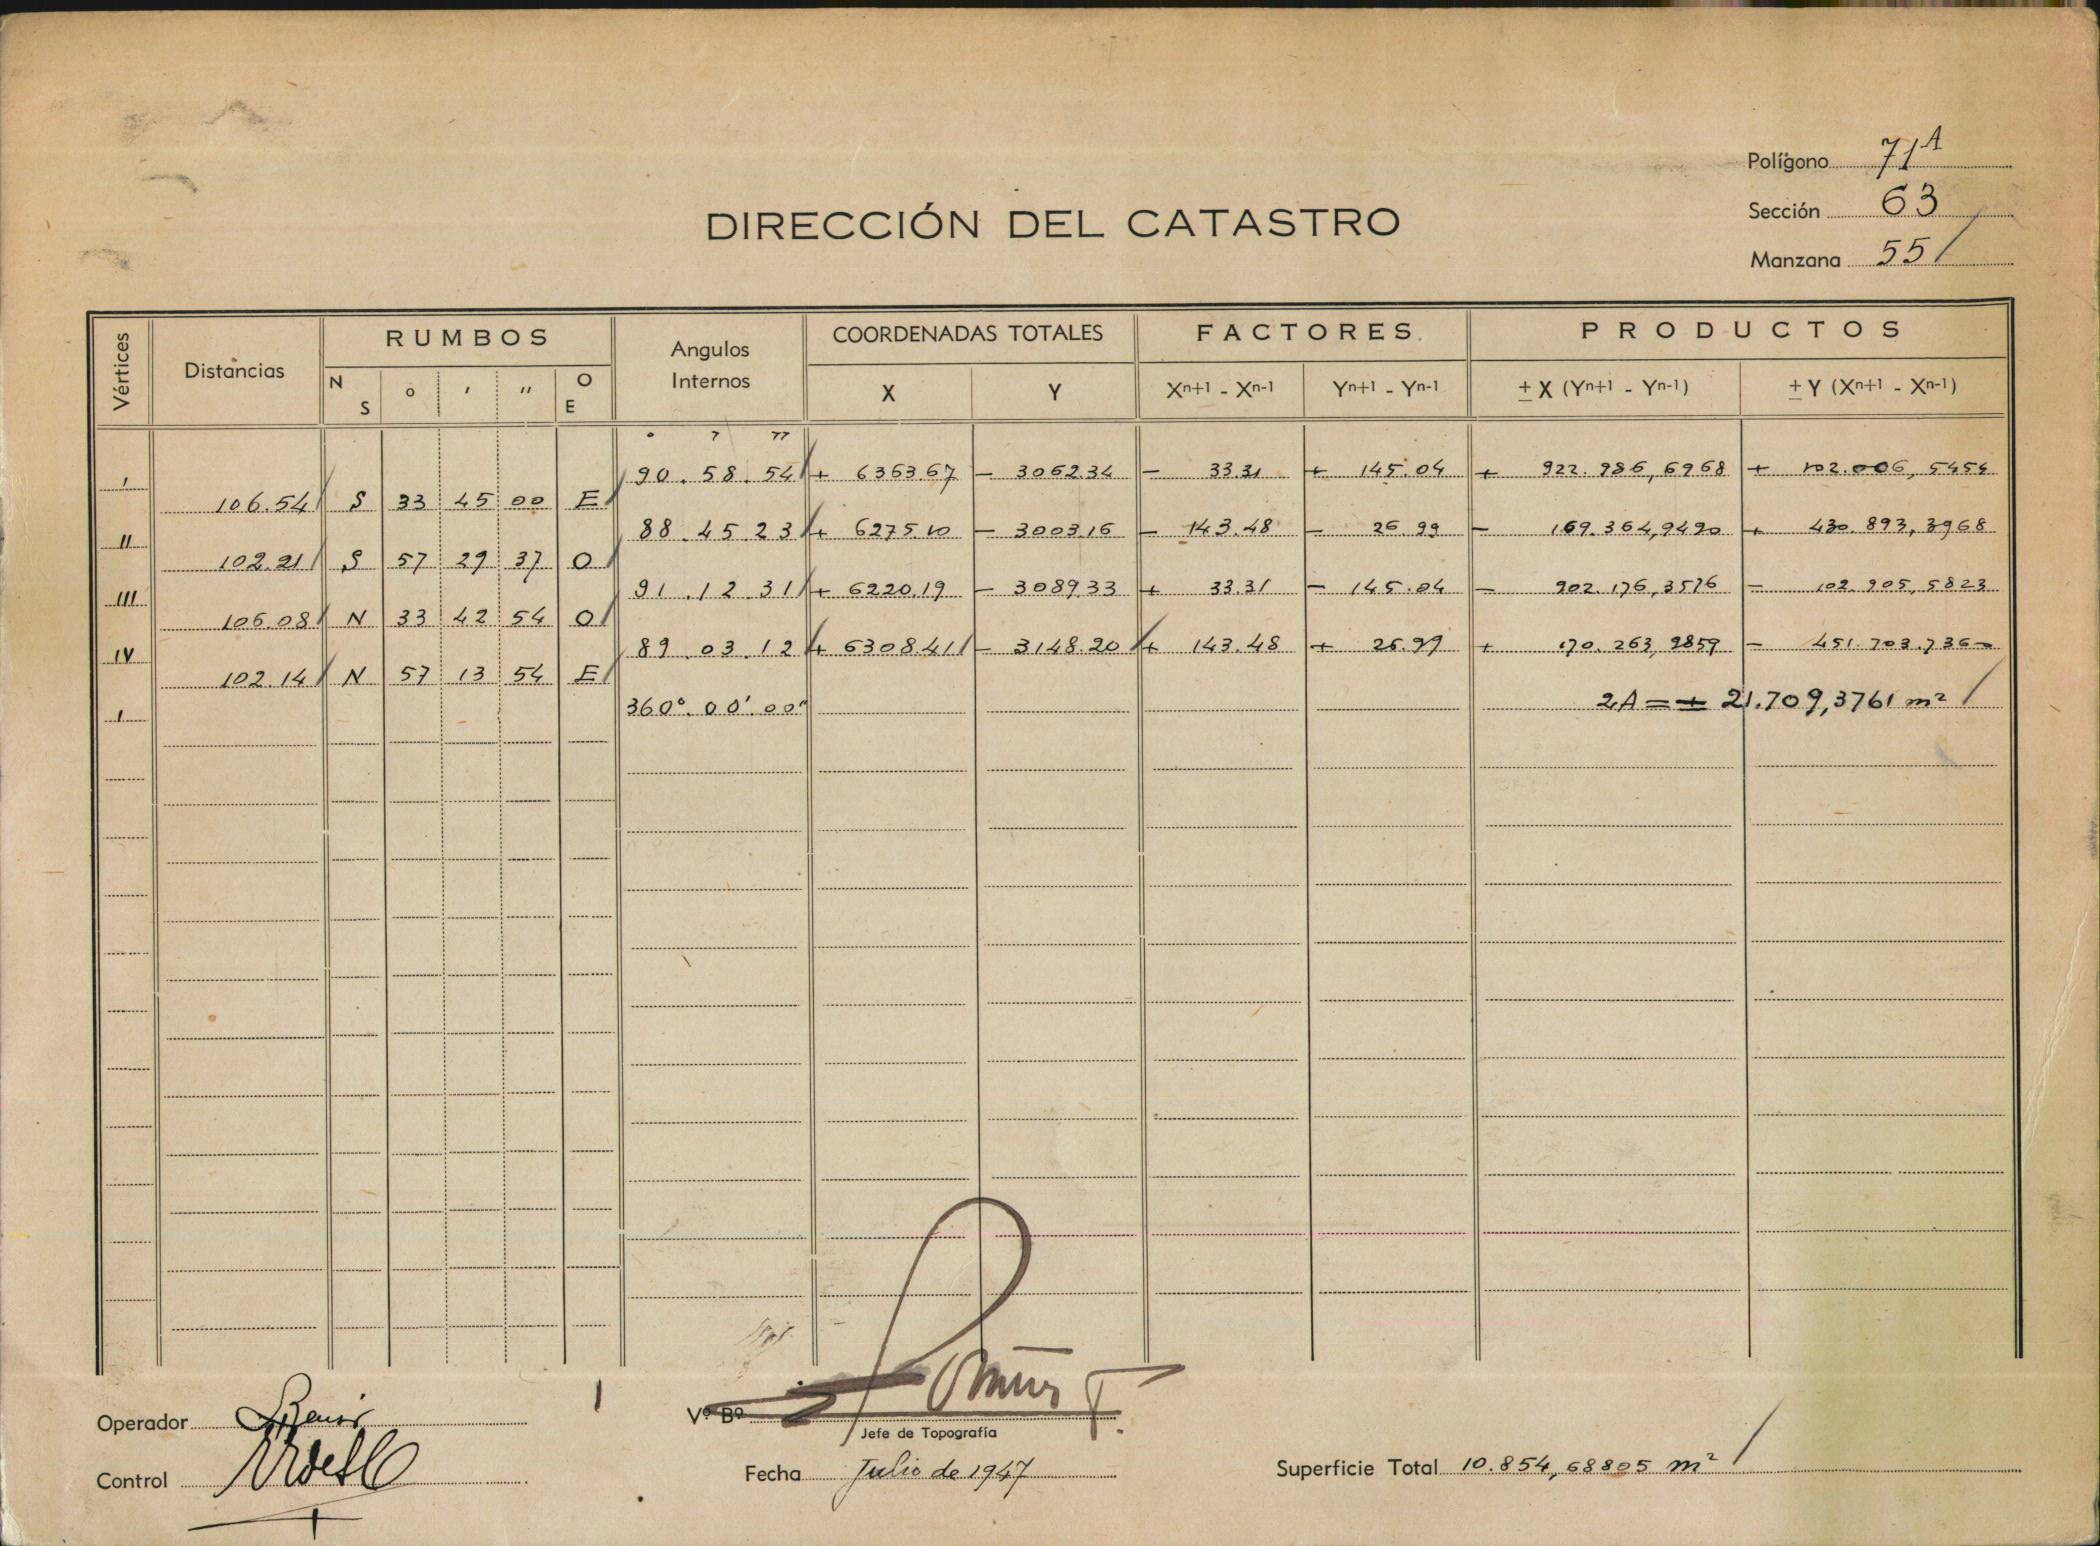 Polígono 71A
Sección 63
DIRECCIÓN DEL CATASTRO
Manzana 55
Vértices Distancias RUMBOS Angulos Internos COORDENADAS TOTALES FACTORES. PRODUCTOS
N S ° ' " O E X Y Xn+1 - Xn-1 Yn+1 - Yn-1 ± X (Yn+1 - Yn-1) ± Y (Xn+1 - Xn-1)
° ' "
I 90.58.54 + 6363.67 - 3062.34 - 33.31 + 145.04 + 922.986,6968 + 102.006,5454
106.54 S 33 45 00 E
II 88.45.23 + 6275.10 - 3003.16 - 143.48 - 26.99 - 169.364,9490 + 430.893,3968
102.21 S 57 29 37 O
III 91.12.31 + 6220.19 - 3089.33 + 33.31 - 145.04 - 902.176,3576 - 102.905,5823
106.08 N 33 42 54 O
IV 89.03.12 + 6308.41 - 3148.20 + 143.48 + 26.99 + 170.263,9859 - 451.703.7360
102.14 N 57 13 54 E
I 360°.00'.00" 2A = + 21.709,3761 m²
Operador
Vº Bº
Jefe de Topografía
Control
Fecha Julio de 1947
Superficie Total 10.854,68805 m²